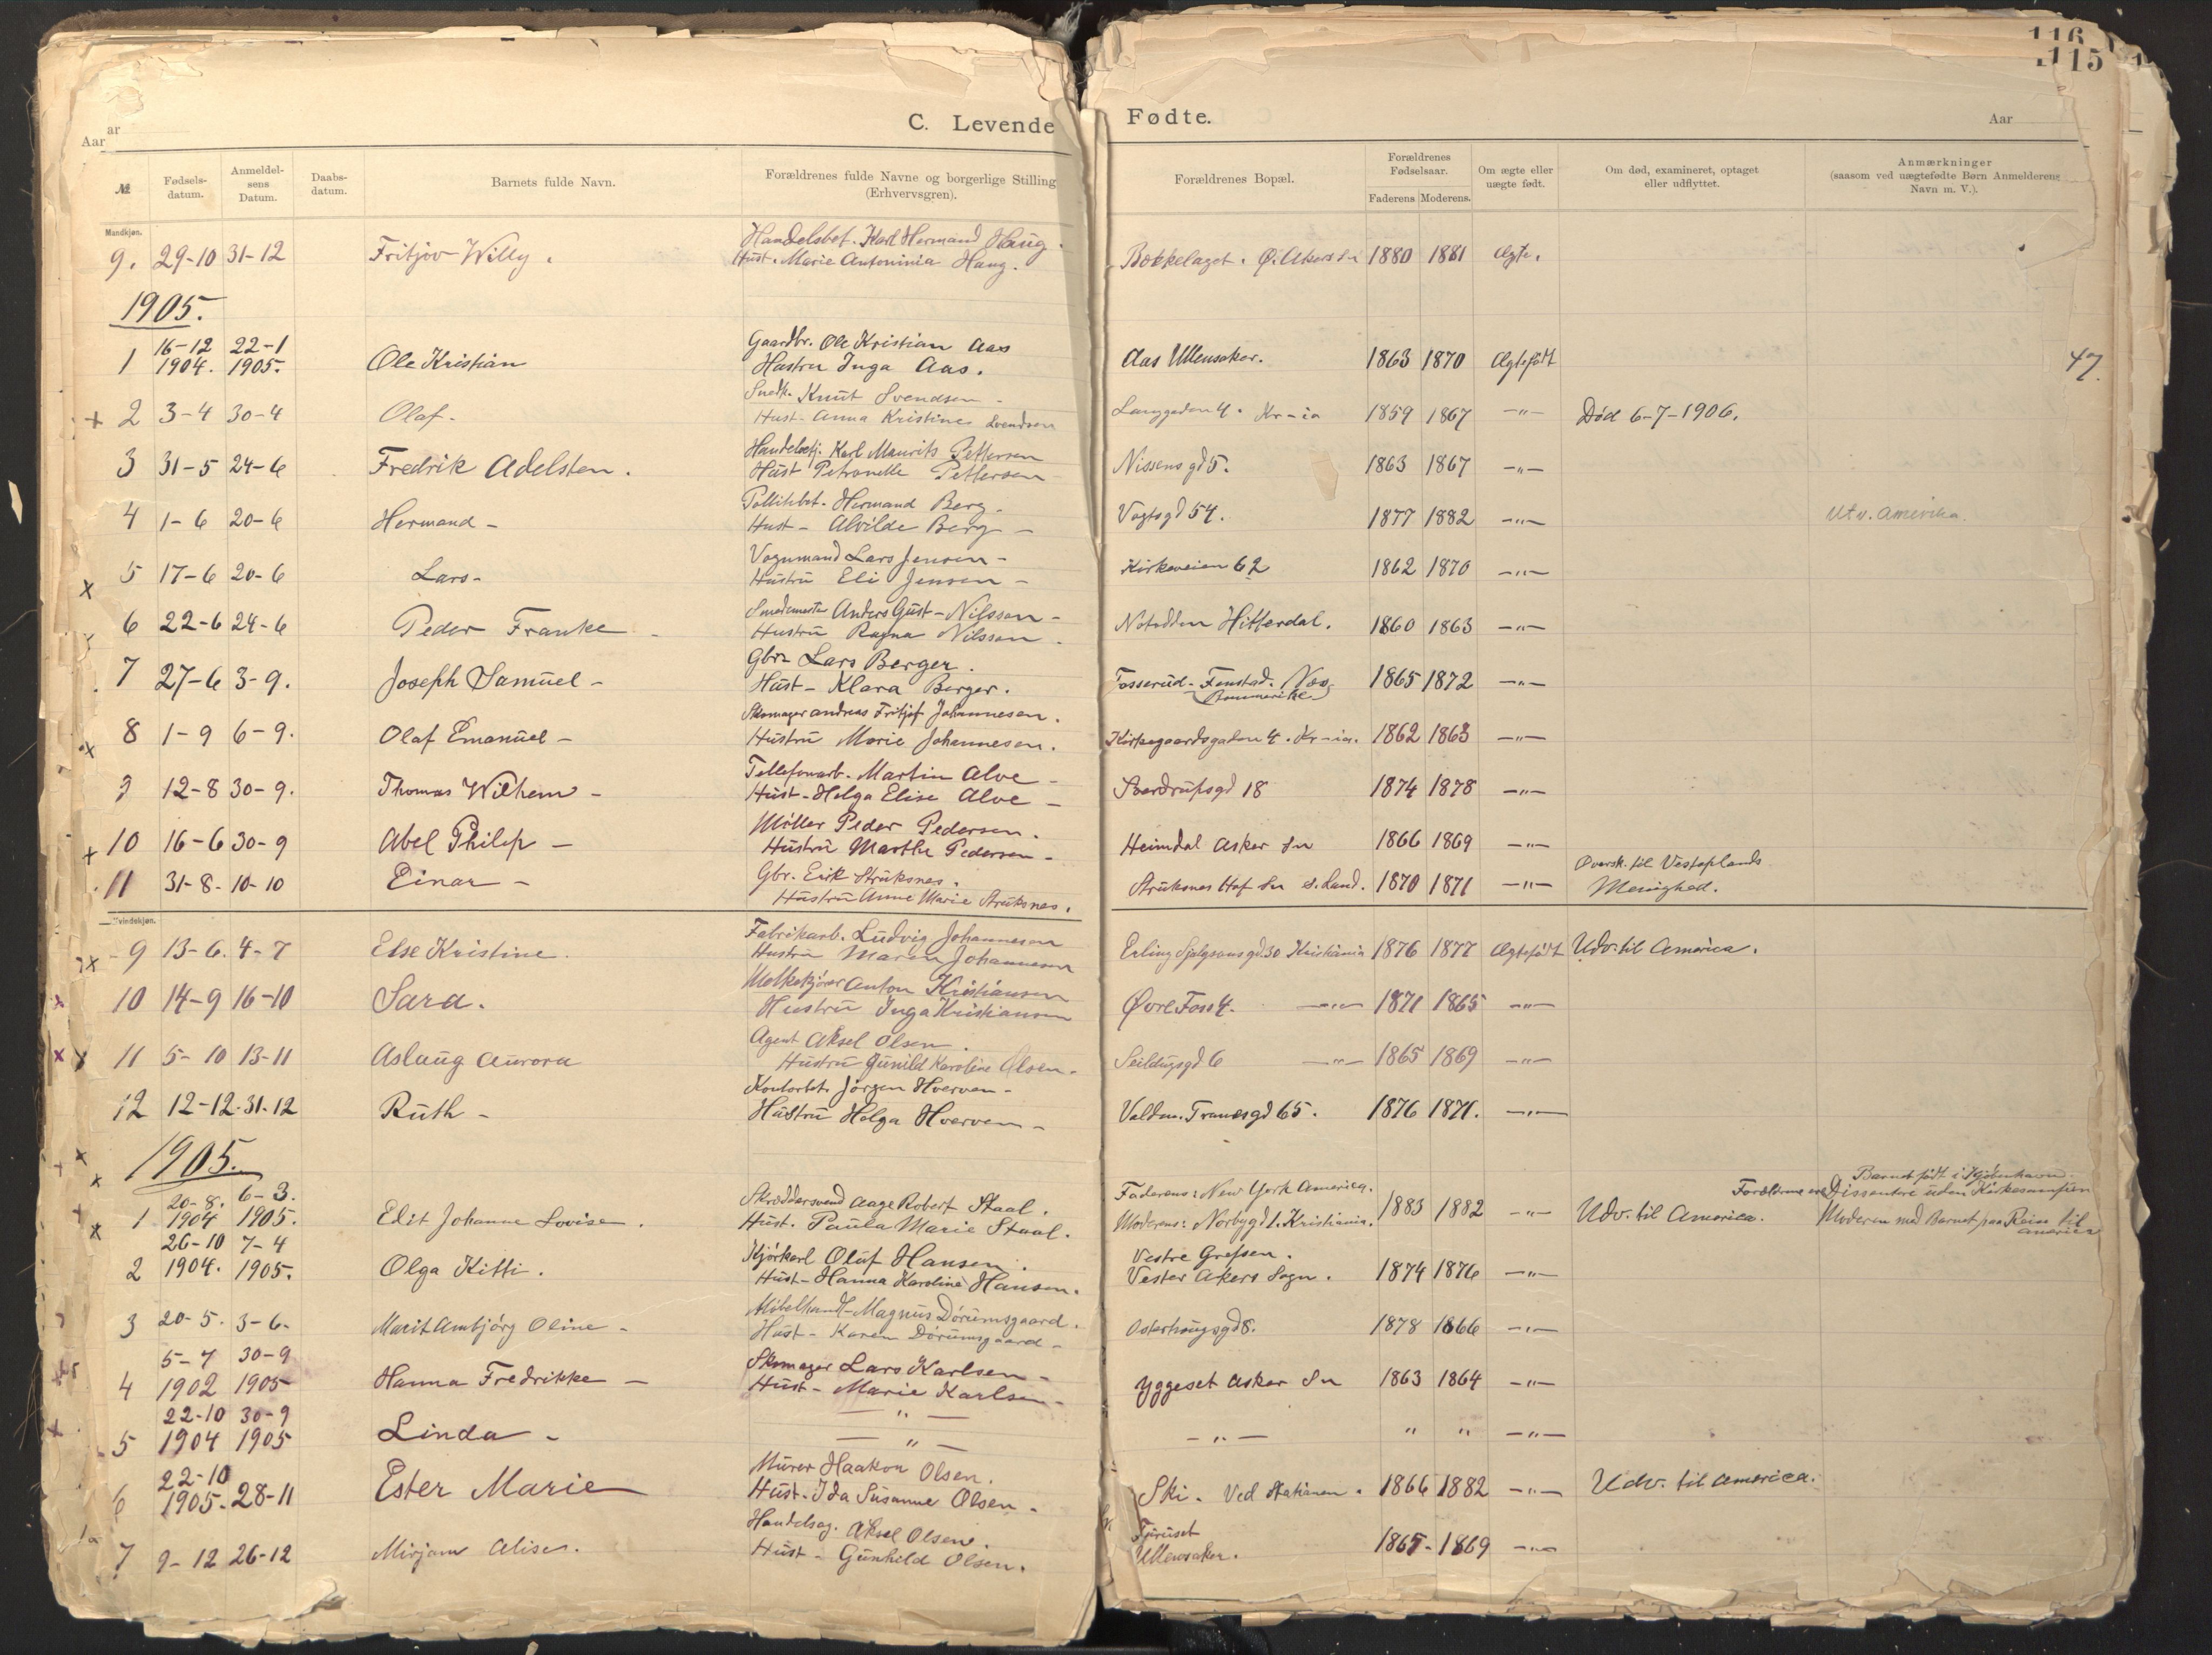 116
115
C. Levende Fødte.
Aar
Aar
№
Fødsels-datum.
Anmeldel-sens Datum.
Daabs-datum.
Barnets fulde Navn.
Forældrenes fulde Navne og borgerlige Stilling (Erhvervsgren).
Forældrenes Bopæl.
Forældrenes Fødselsaar.
Faderens
Moderens.
Om ægte eller uægte født.
Om død, examineret, optaget eller udflyttet.
Anmærkninger (saasom ved uægtefødte Børn Anmelderens Navn m. V.).
Mandkjøn.
9. 29-10 31-12 Fritjov Willy. Handelsbet. Karl Hermand Haug. Hust. Marie Antoninia Haug. Bækkelaget. Ø. Akers 1880 1881 Ægte.
1905.
1 16-12 1904. 22-1 1905. Ole Kristian Gaardbr. Ole Kristian Aas Hustru Inga Aas. Aas Ullensaker. 1863 1870 Ægtefødt
47.
2 3-4 30-4 Olaf- Snedk. Knut Svendsen - Hust- Anna Kristine Svendsen Langgaden 4. Kr-ia 1859 1867 -"- Død 6-7-1906.
3 31-5 24-6 Fredrik Adelsten. Karl Maurits Pettersen Hust Petronelle Pettersen Nissens gd 5. 1863 1867 -"-
4 1-6 20-6 Hermand - Pollitibet. Hermand Berg. Hust- Alvilde Berg - Vogtsgd 54. 1877 1882 -"- Utv. Amerika.
x 5 17-6 20-6 Lars- Vognmand Lars Jensen - Hustru Eli Jensen - Kirkeveien 62 1862 1870 -"-
6 22-6 24-6 Peder Franke - Smedemester Anders Gust- Nilsson - Hustru Ragna Nilsson. Notodden Hitterdal. 1860 1863 -"-
7 27-6 3-9. Joseph Samuel - Gbr. Lars Berger. Hust- Klara Berger. Fosserud- Fenstad. Næs Rommerike 1865 1872 -"-
x 8 1-9 6-9. Olaf Emanuel - Skomager Andreas Fritjof Johannesen. Hustru Marie Johannesen. Kirkegaardsgaden 4. Kr-ia. 1862 1863 -"-
9 12-8 30-9. Thomas Wilhem - Tellefonarb. Martin Alve - Hust- Helga Elise Alve - Sverdrupsgd 18 1874 1878 -"-
x 10 16-6 30-9 Abel Philip - Møller Peder Pedersen. Hustru Marthe Pedersen - Heimdal Asker Sn 1866 1869 -"-
11 31-8- 10-10 Einar - Gbr. Erik Struksnes. Hustru Anne Marie Struksnes. Struksnes Hof Sn S. Land. 1870 1871 -"- Oversk. til Vestoplands Menighed.
Kvindekjøn.
x -9 13-6. 4-7 Else Kristine. Fabrikarb. Ludvig Johannesen Hustru Maren Johannesen Erling Sjalgsonsgd 30 Kristiania 1876 1877 Ægtefødt Udv. til America.
x 10 14-9 16-10 Sara. Melkekjører Anton Kristiansen Hustru Inga Kristiansen Øvre Foss 4. -"- 1871 1865 -"-
x 11 5-10 13-11 Aslaug Aurora Agent Aksel Olsen. Hustru Gunild Karoline Olsen. Seildugsgd 6 -"- 1865 1869 -"-
12 12-12. 31-12 Ruth - Kontorbet. Jørgen Hverven - Hustru Helga Hverven - Valdm. Tranesgd 65. 1876 1871. -"-
1905.
1 20-8. 1904 6-3. 1905. Edit Johanne Lovise. Skræddersvend Aage Robert Staal. Hust. Paula Marie Staal. Faderens: New York America. Moderens: Norbygd 1. Kristiania. 1883 1882 -"- Udv. til America. Barnet født i Kjøbenhavn. Forældrene ere Dissentre uden Kirkesamfun Moderen med Barnet paa Reise til America
x 2 26-10 1904. 7-4 1905. Olga Kitti. Kjørkarl Oluf Hansen. Hust- Hanna Karoline Hansen. Vestre Grefsen. Vester Akers Sogn. 1874 1876 -"-
3 20-5. 3-6- Marit Ambjørg Oline - Møbelhandl- Magnus Dørumsgaard. Hust- Karen Dørumsgaard - Osterhaugsgd 8. 1878 1866 -"-
4 5-7 1902 30-9 1905 Hanna Fredrikke - Skomager Lars Karlsen - Hust- Marie Karlsen - Yggeset Asker Sn 1863 1864 -"-
5 22-10 1904 30-9 1905 Linda - -"- -"- -"- " " -"-
6 22-10 1905. 28-11 Ester Marie Murer Haakon Olsen. Hust. Ida Susanne Olsen - Ski. Ved Stationen. 1866 1882 -"- Udv. til America.
7 9-12 26-12 Mirjam Alise. Handelsag. Aksel Olsen. Hust- Gunhild Olsen. Ullensaker. 1865- 1869 -"-